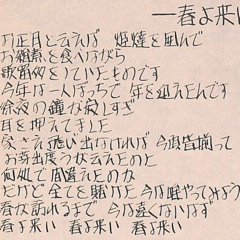 一春よ来い
お正月と云えば 炬燵を囲んで
お雑煮を食べながら
歌留多をしていたものです
今年は一人ぼっちで 年を迎えたんです
除夜の鐘が寂しすぎ
耳を押えてました
家さえ飛び出さなければ 今頃皆揃って
お芽出度うが云えたのに
何処で間違えたのか
だけど全てを賭けた 今は唯やってみよう
春が訪れるまで 今は遠くないはず
春よ来い 春よ来い 春よ来い